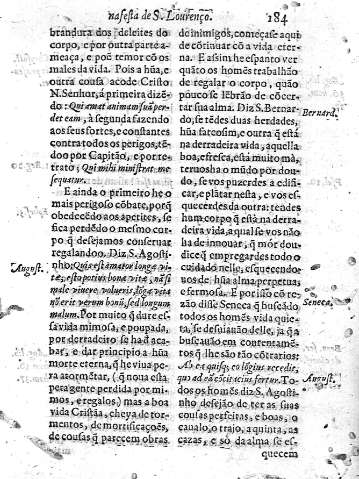 na festa de S. Lourenço. 184
brandura dos deleites do
corpo, e por outra parte a-
meaça, e poẽ temor cõ os
males da vida. Pois a hũa, e
outra cousa acode Cristo
N. Senhor, á primeira dizẽ-
do: Qui amat animam suã per-
det eam, à segunda fazendo
aos seus fortes, e constantes
contra todos os perigos, tẽ-
doo por Capitão, e por re-
trato; Qui mihi ministrat me
sequatur.
E ainda o primeiro he o
mais perigoso cõbate, porq̃
obedecẽdo aos apetites, se
fica perdẽdo o mesmo cor-
po q̃ desejamos conseruar
regalando. Diz S. Agosti-
nho: Quis est amator longæ vi-
August.
malum. Por muito q̃ dure es-
sa vida mimosa, e poupada,
por derradeiro se ha d'aca-
bar, e dar principio a hũa
morte eterna, q̃ he viua pe-
ra atormẽtar, (q̃ noua esta
pera gente perdida por mi-
mos, e regalos,) mas a boa
vida Cristãa, cheya de tor-
mentos, de mortificações,
de cousas q̃ parecem obras
de inimigos, começase aqui
de cõtinuar cõ a vida eter-
na. E assim he espanto ver
quãto os homẽs trabalhão
de regalar o corpo, quão
pouco se lẽbrão de cõcer-
tar sua alma. Diz S. Bernar-
do, se tẽdes duas herdades,
Bernard.
hũa fatcosim, e outra q̃ está
na derradeira vida, aquella
boa, e fresca, está muito mà,
teruosha o mũdo por dou-
do, se vos puzerdes a edifi-
car, e plãtar nesta, e vos es-
quecerdes da outra: tendes
hum corpo q̃ està na derra-
deira vida, a qual se vos não
ha de innouar, q̃ mór dou-
dice q̃ empregardes todo o
cuidado nelle, esquecendo-
uos de hũa alma perpetua,
e fermosa. E por isso cõ re-
zão disse Seneca, q̃ buscan-
Seneca.
do todos os homẽs vida quie-
ta, se desuiauão delle, ja q̃ a
buscauão em contentamẽ-
tos q̃ lhe são tão cõtrarios:
August.
dos os homẽs diz S. Agosti-
nho desejão de ter as suas
cousas perfeitas, e boas, o
caualo, o trajo, a quinta, as
cazas, e só da alma se es-
quecem